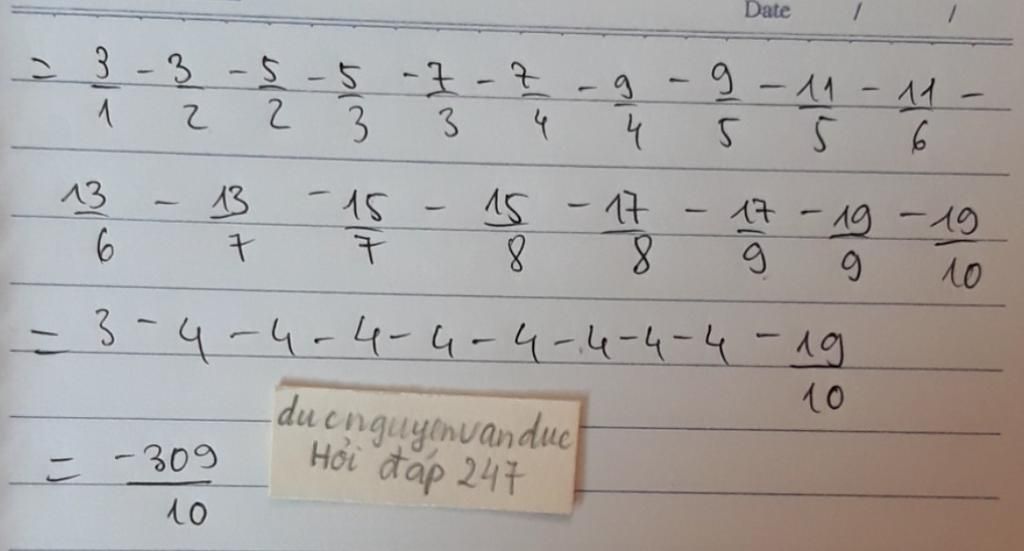 Date / /
= 3/1 - 3/2 - 5/2 - 5/3 - 7/3 - 7/4 - 9/4 - 9/5 - 11/5 - 11/6 -
13/6 - 13/7 - 15/7 - 15/8 - 17/8 - 17/9 - 19/9 - 19/10
= 3 - 4 - 4 - 4 - 4 - 4 - 4 - 4 - 4 - 19/10
= -309/10
ducnguyenvanduc
Hỏi đáp 247